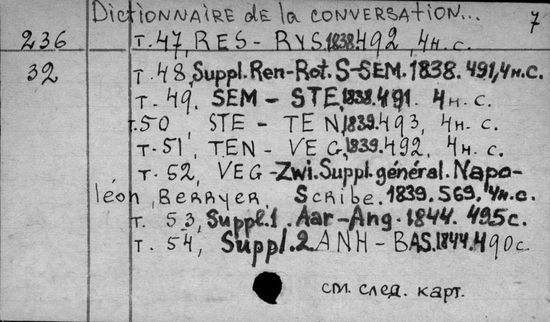 Dictionnaire de la conversation... 7
236 Т. 47, RES - RYS, 1838, 492, 4 н. с.
32 Т. 48, Suppl. Ren-Rot. S-SEM. 1838. 491, 4 н. с.
Т. 49, SEM - STE, 1838, 491. 4 н. с.
Т. 50, STE - TEN, 1839, 493, 4 н. с.
Т. 51, TEN - VEG, 1839, 492, 4 н. с.
Т. 52, VEG - Zwi. Suppl. général. Napo-
léon, Berryer, Scribe. 1839. 569, 4 н. с.
Т. 53, Suppl. 1. Aar-Ang. 1844. 495 с.
Т. 54, Suppl. 2 ANH - BAS. 1844. 490 с.
см. след. карт.